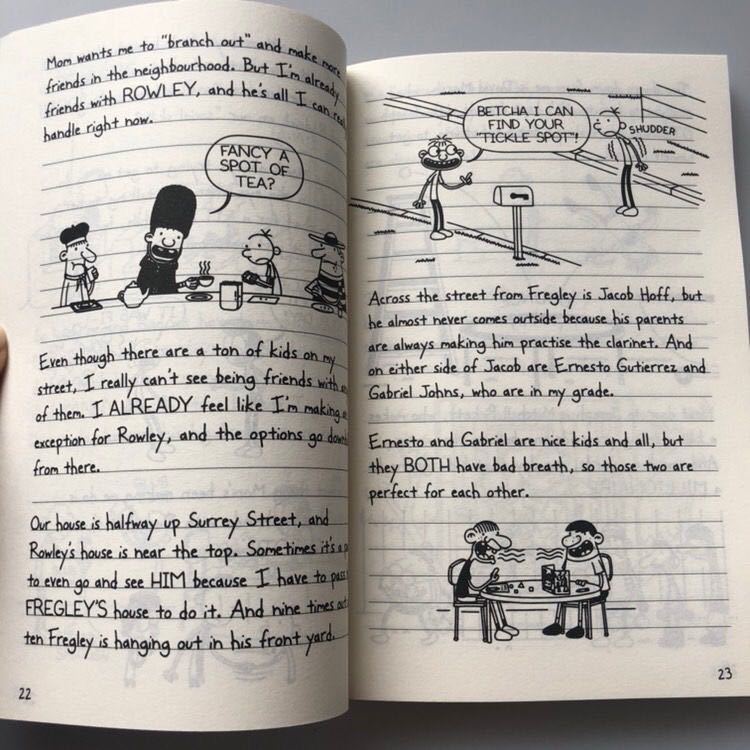 Mom wants me to "branch out" and make more
friends in the neighbourhood. But I'm already
friends with ROWLEY, and he's all I can
handle right now.
FANCY A
SPOT OF
TEA?
Even though there are a ton of kids on my
street, I really can't see being friends with
of them. I ALREADY feel like I'm making
exception for Rowley, and the options go
from there.
Our house is halfway up Surrey Street, and
Rowley's house is near the top. Sometimes it's a
to even go and see HIM because I have to
FREGLEY'S house to do it. And nine times
ten Fregley is hanging out in his front yard.
22
BETCHA I CAN
FIND YOUR
"TICKLE SPOT"!
SHUDDER
Across the street from Fregley is Jacob Hoff, but
he almost never comes outside because his parents
are always making him practise the clarinet. And
on either side of Jacob are Ernesto Gutierrez and
Gabriel Johns, who are in my grade.
Ernesto and Gabriel are nice kids and all, but
they BOTH have bad breath, so those two are
perfect for each other.
23